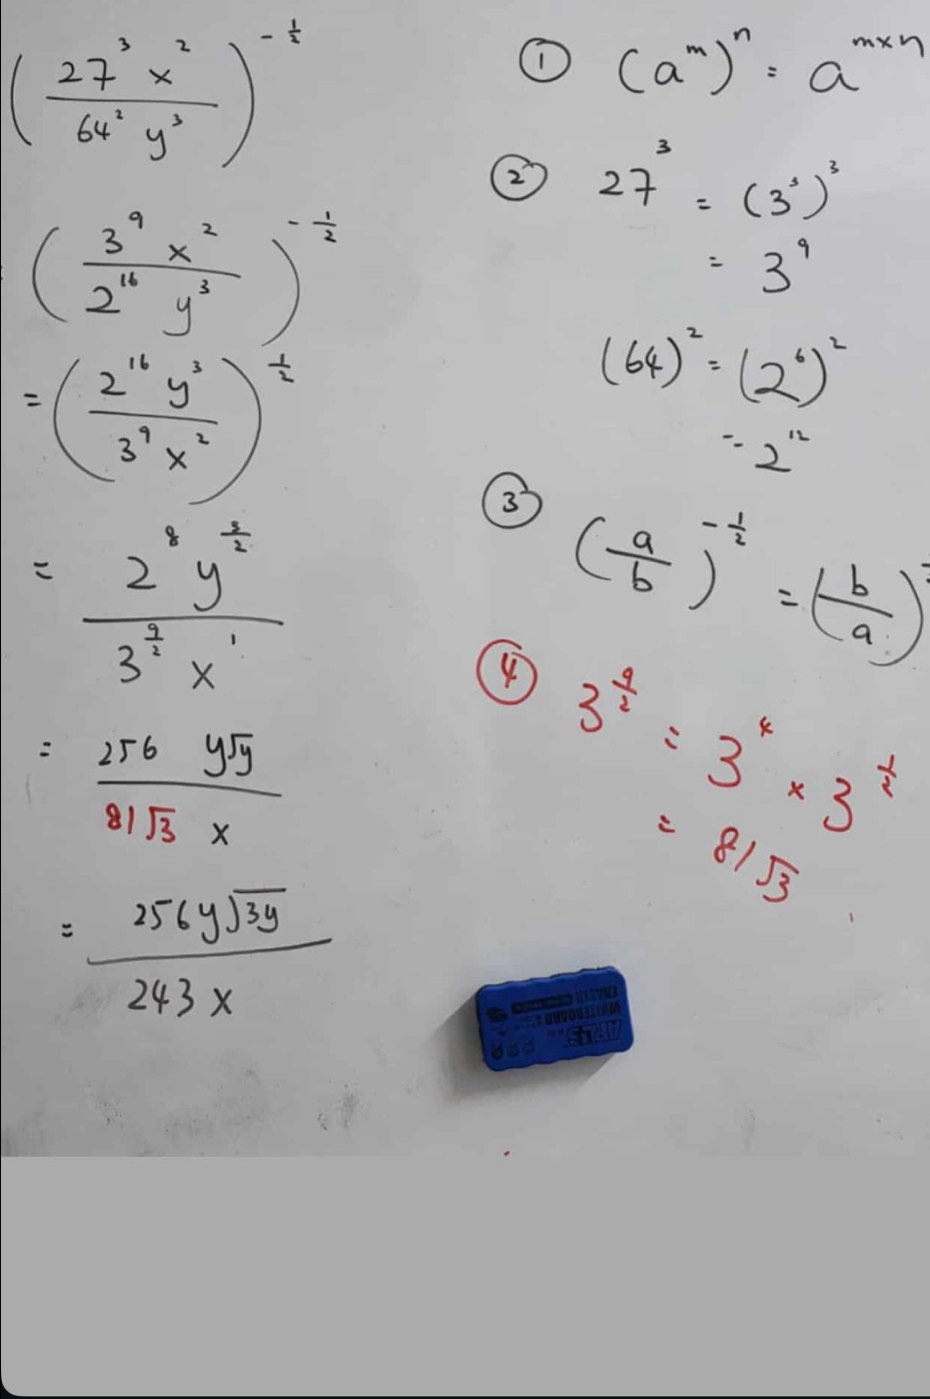 (27³x² / 64²y³)^(-1/2)
(3⁹x² / 2¹⁶y³)^(-1/2)
= (2¹⁶y³ / 3⁹x²)^(1/2)
= 2⁸y^(3/2) / 3^(9/2)x¹
= 256 y√y / 81√3 x
= 256y√3y / 243x
① (a^m)^n = a^(m×n)
② 27³ = (3³)³
= 3⁹
(64)² = (2⁶)²
= 2¹²
③ (a/b)^(-1/2) = (b/a)
④ 3^(9/2) = 3⁴ × 3^(1/2)
= 81√3
WHITEBOARD
ERASER